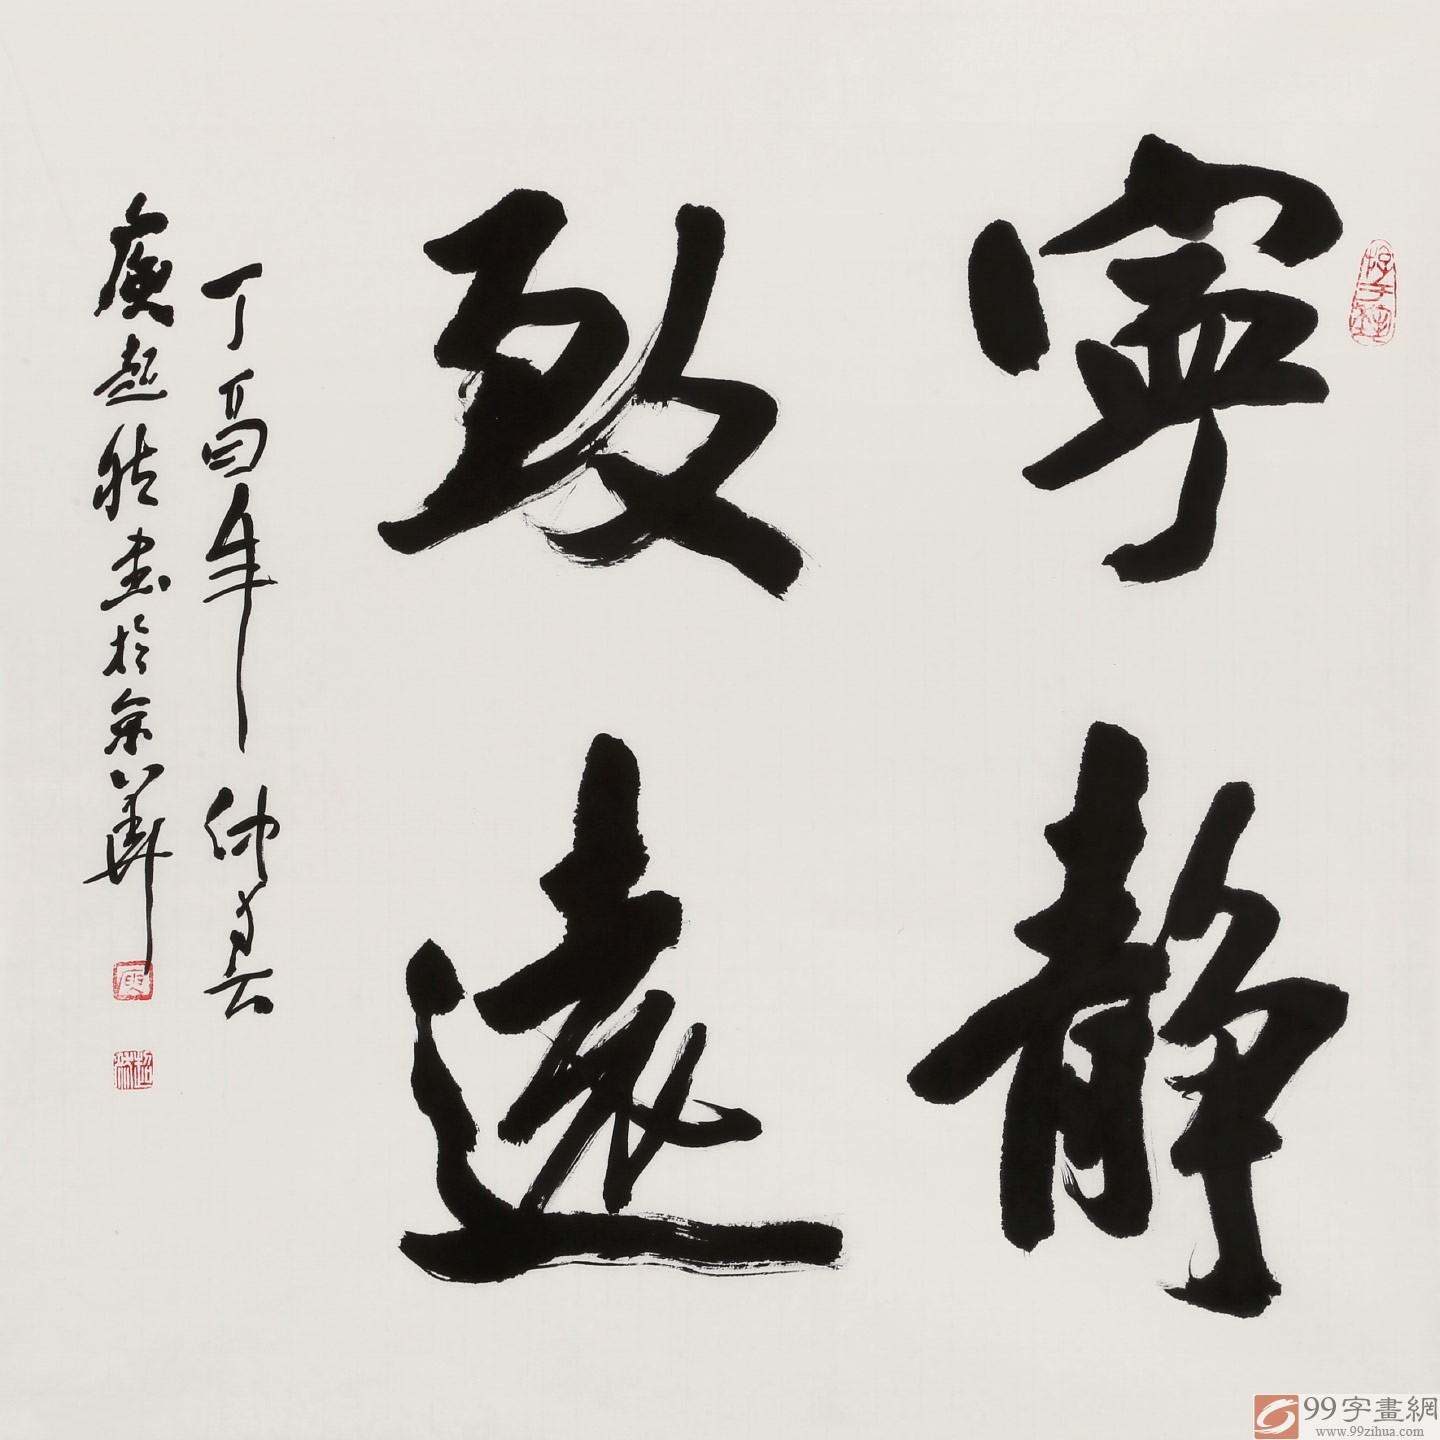 寧靜
致遠
丁酉年仲春
庾超然書於京華
99字畫網
www.99zihua.com